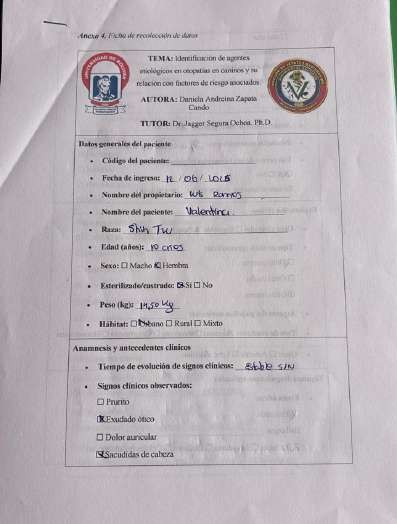 Anexo 4. Ficha de recolección de datos
TEMA: Identificación de agentes
etiológicos en otopatías en caninos y su
relación con factores de riesgo asociados
AUTORA: Daniela Andreina Zapata
Cando
TUTOR: Dr. Jagger Segura Ochoa, Ph.D
Datos generales del paciente
• Código del paciente:
• Fecha de ingreso: 12 / 06 / 2025
• Nombre del propietario: Luis Barros
• Nombre del paciente: Valentina
• Raza: Shih Tzu
• Edad (años): 10 años
• Sexo: ☐ Macho ☒ Hembra
• Esterilizado/castrado: ☒ Sí ☐ No
• Peso (kg): 14,50 kg
• Hábitat: ☒ Urbano ☐ Rural ☐ Mixto
Anamnesis y antecedentes clínicos
• Tiempo de evolución de signos clínicos:
• Signos clínicos observados:
☐ Prurito
☒ Exudado ótico
☐ Dolor auricular
☒ Sacudidas de cabeza